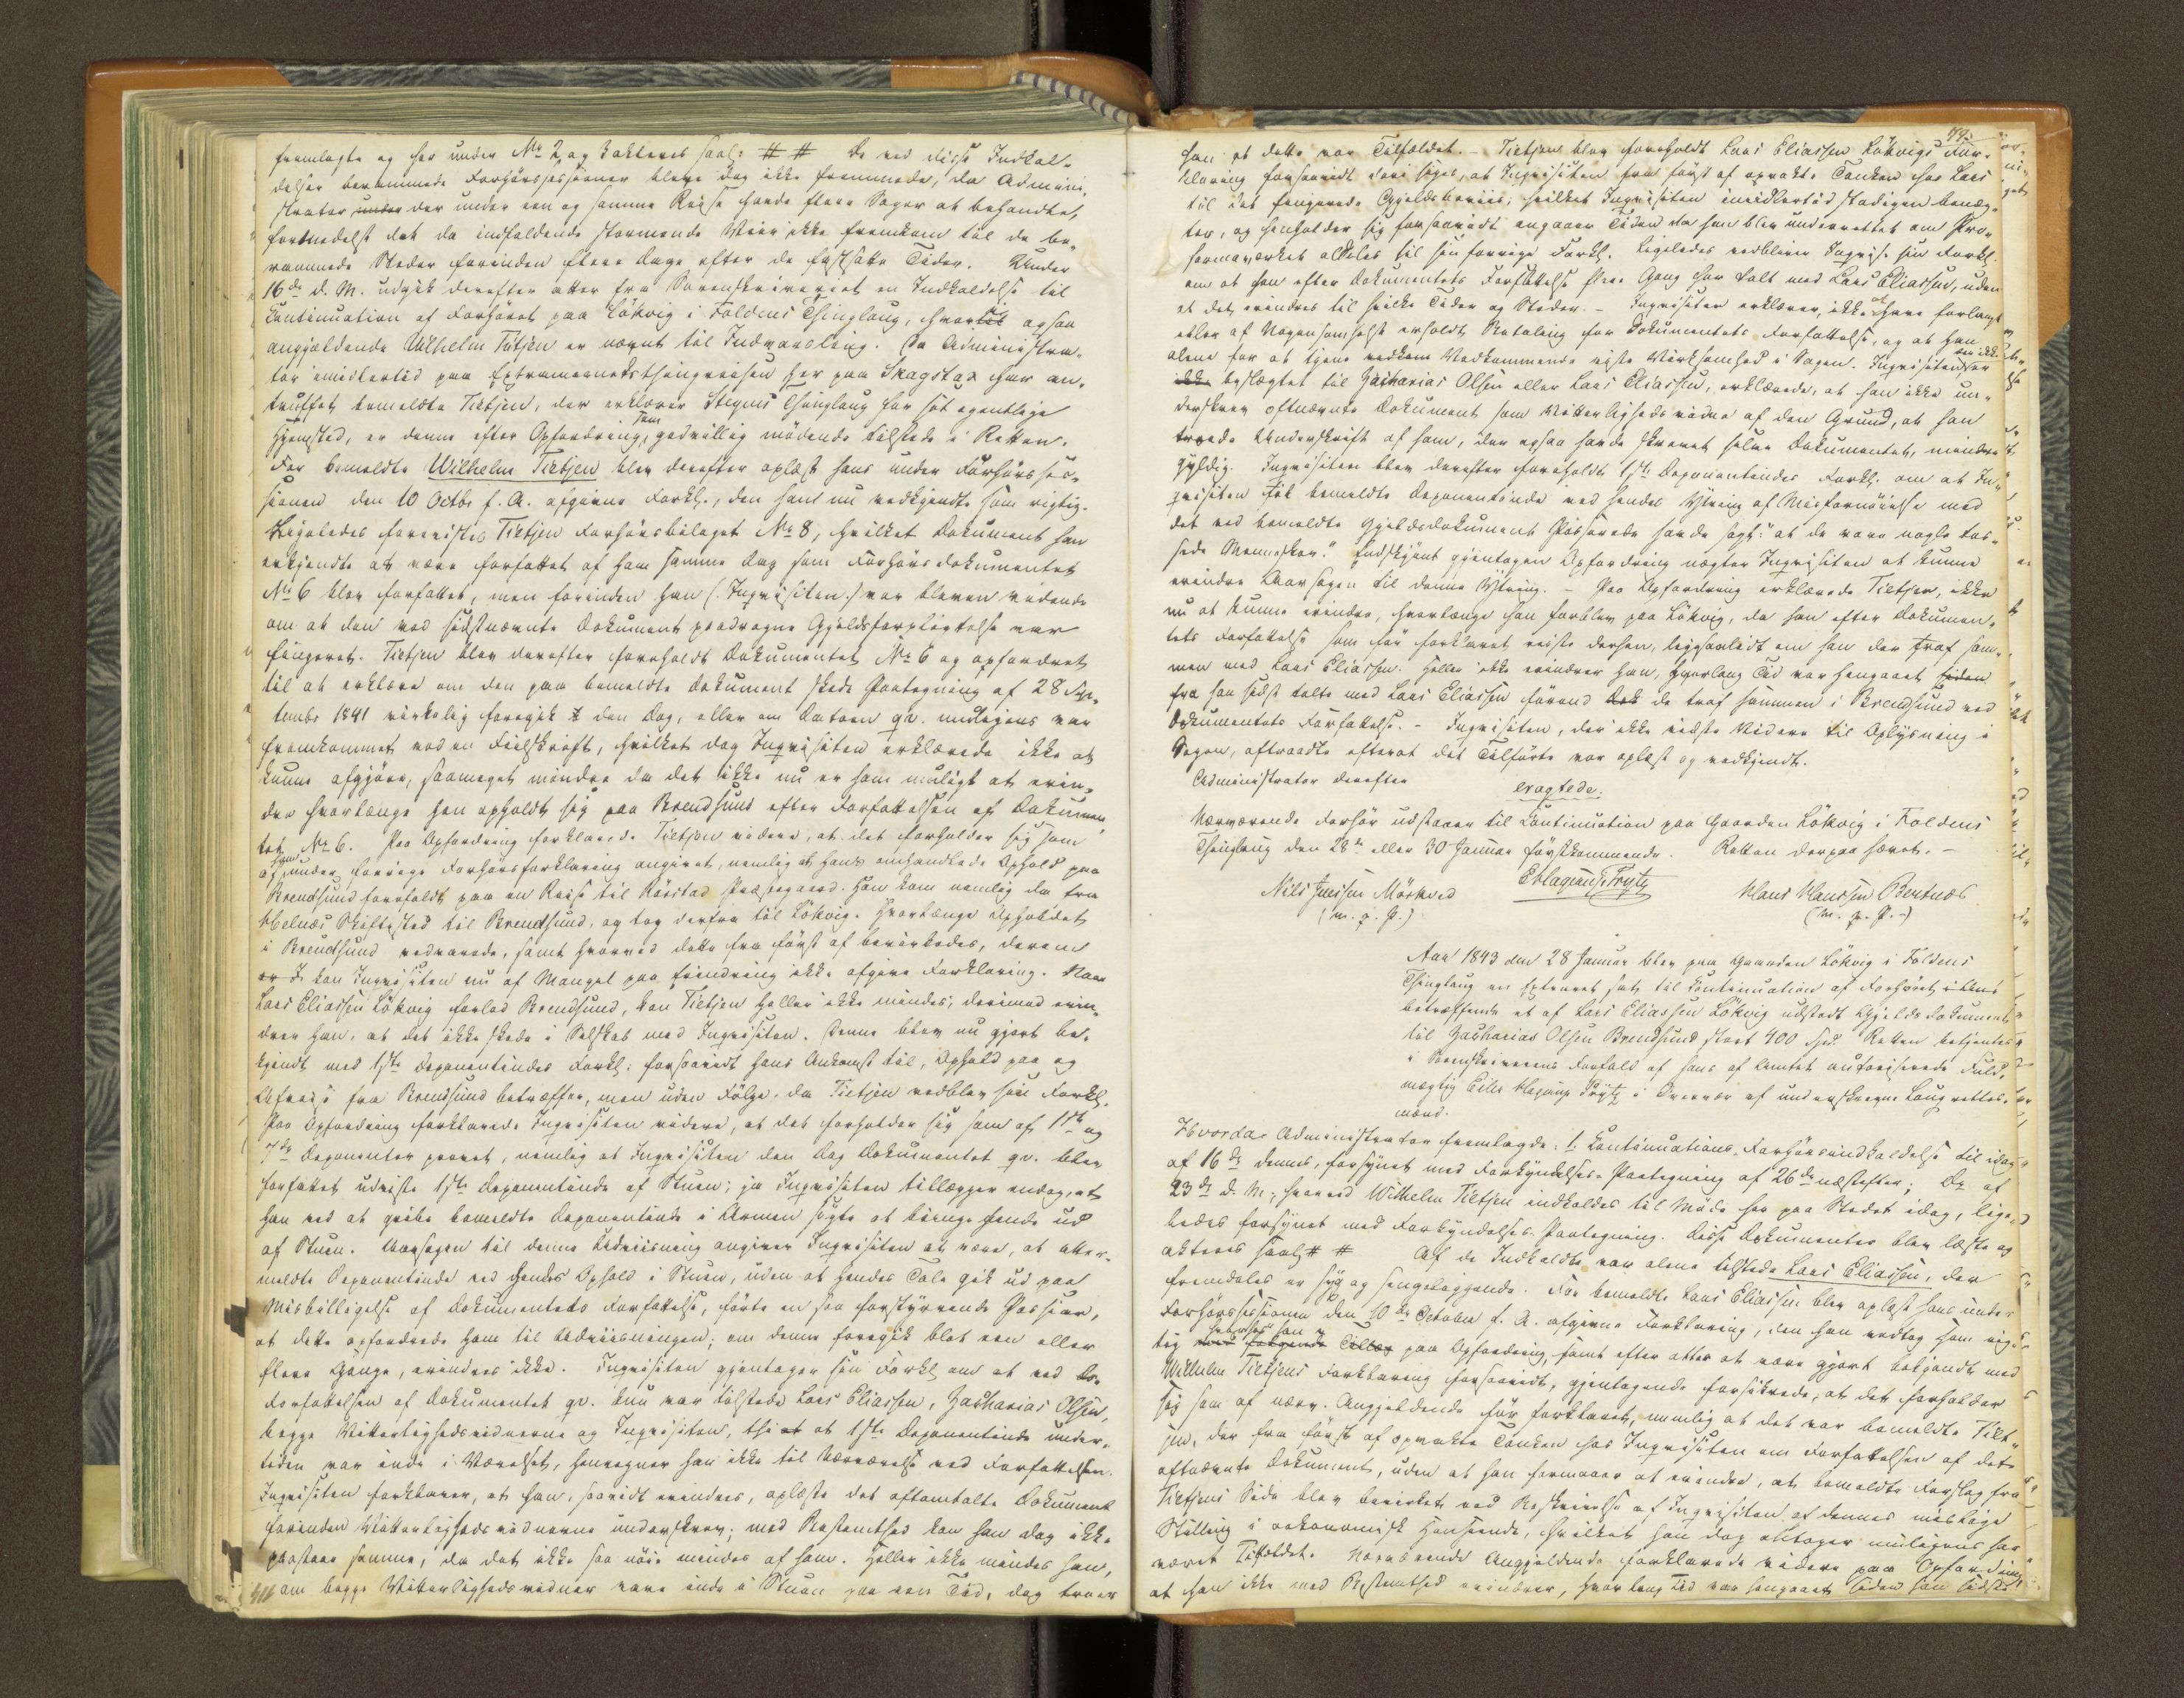 fremlagte og her under No 2 og 3 akteres saal: # # De ved disse Indkal-
delser berammede Forhørssessioner bleve dog ikke fremmede, da Admini-
strator under der under een og samme Reise havde flere Sager at behandle,
formedelst det da indfaldende stormende Veir ikke fremkom til de be-
rammede Steder forinden flere Dage efter de fastsatte Tider. Under
16de d. M. udgik derefter atter fra Sorenskriveriet en Indkaldelse til
Continuation af Forhøret paa Løkvig i Foldens Thinglaug, hvortil ogsaa
angjældende Wilhelm Tietjen er nævnt til Indvarsling. Da Administra-
tor imidlertid paa Extrameenedsthingreisen her paa Skagstad har an-
truffet bemeldte Tietjen, der erklærer Steigens Thinglaug for sit egentlige
Hjemsted, er denne efter Opfordring, godvillig mødende tilstede i Retten.
For bemeldte Wilhelm Tietjen blev derefter oplæst hans under Forhørsses-
sionen den 10 Octbr f. A. afgivne Forkl., den han nu vedkjendte som rigtig.
Ligeledes forevistes Tietjen Forhørsbilaget No 8, hvilket Dokument han
erkjendte at være forfattet af ham samme Dag som Forhørsdokumentet
No 6 blev forfattet, men forinden han (: Inqvisiten :) var bleven vidende
om at den ved sidstnævnte Dokument paadragne Gjeldsforpligtelse var
fingeret. Tietjen blev derefter foreholdt Dokumentet No 6 og opfordret
til at erklære om den paa bemeldte Dokument skede Paategning af 28 Sep-
tembr 1841 virkelig foregik den Dag, eller om Datoen qv. muligens var
fremkommet ved en Feilskrift, hvilket dog Inqvisiten erklærede ikke at
kunne afgjøre, saameget mindre da det ikke nu er ham muligt at erin-
dre hvorlænge han opholdt sig paa Brendsund efter Forfattelsen af Dokumen-
tet No 6. Paa Opfordring forklarede Tietjen videre, at det forholder sig som
af ham under forrige Forhørsforklaring angivet, nemlig at hans omhandlede Ophold paa
Brendsund forefaldt paa en Reise til Rørstad Præstegaard. Han kom nemlig da fra
Helnæs Skiftested til Brendsund, og tog derfra til Løkvig. Hvorlænge Opholdet
i Brendsund vedvarede, samt hvorved dette fra først af bevirkedes, derom
kan Inqvisiten nu af Mangel paa Erindring ikke afgive Forklaring. Naar
Lars Eliassen Løkvig forlod Brendsund, kan Tietjen heller ikke mindes; derimod erin-
drer han, at det ikke skede i Selskab med Inqvisiten. Denne blev nu gjort be-
kjendt med 1ste Deponentindes Forkl: forsaavidt hans Ankomst til, Ophold paa og
Afreise fra Brendsund betræffer, men uden Følge, da Tietjen vedblev sin Forkl.
Paa Opfordring forklarede Inqvisiten videre, at det forholder sig som af 1ste og
7de Deponenter provet, nemlig at Inqvisiten den Dag Dokumentet qv. blev
forfattet udviste 1ste Deponentinde af Stuen; ja Inqvisiten tillægger endog, at
han ved at gribe bemeldte Deponentinde i Armen søgte at bringe hende ud
af Stuen. Aarsagen til denne Udviisning angiver Inqvisiten at være, at atter-
meldte Deponentinde ved hendes Ophold i Stuen, uden at hendes Tale gik ud paa
Misbilligelse af Dokumentets Forfattelse, førte en saa forstyrrende Passiar,
at dette opfordrede ham til Udviisningen; om denne foregik blot een eller
flere Gange, erindres ikke. Inqvisiten gjentager sin Forkl om at ved
Forfattelsen af Dokumentet qv. kun var tilstede Lars Eliassen, Zacharias Olsen,
begge Vitterlighedsvidnerne og Inqvisiten, thi at 1ste Deponentinde under-
tiden var inde i Værelset, henregner han ikke til Nærværelse ved Forfattelsen.
Inqvisiten forklarer, at han, saavidt erindres, oplæste det oftomtalte Dokument
forinden Vitterlighedsvidnerne underskrev; med Bestemthed kan han dog ikke
paastaae samme, da det ikke saa nøie mindes af ham. Heller ikke mindes han,
om begge Vitterlighedsvidner vare inde i Stuen paa een Tid, dog troer
79.
han at dette var Tilfældet. - Tietjen blev foreholdt Lars Eliassen Løkvigs For-
klaring forsaavidt deri siges, at Inqvisiten fra først af opvakte Tanken hos Lars
til det fingerede Gjeldsbeviis, hvilket Inqvisiten imidlertid stadigen benæg-
ter, og henholder sig forsaavidt angaaer Tiden da han blev underrettet om Pro-
formaværket aldeles til sin forrige Forkl. Ligeledes vedbliver Inqvis. sin Forkl.
om at han efter Dokumentets Forfattelse flere Gang har talt med Lars Eliassen, uden
at det erindres til hvilke Tider og Steder. - Inqvisiten erklærer, ikke at have forlangt
eller af Nogensomhelst erholdt Betaling for Dokumentets Forfattelse, og at han
alene for at tjene Vedkommende viste Virksomhed i Sagen. Inqvisiten, der ikke er
ikke beslægtet til Zacharias Olsen eller Lars Eliassen, erklærede, at han ikke un-
derskrev oftnævnte Dokument som Vitterlighedsvidne af den Grund, at han
troede Underskrift af ham, der ogsaa havde skrevet selve Dokumentet, mindre
gyldig. Inqvisiten blev derefter foreholdt 1ste Deponentindes Forkl. om at In-
qvisiten til bemeldte Deponentinde ved hendes Yttring af Misfornøielse med
det ved bemeldte Gjeldsdokument Passerede havde sagt: "at de vare nogle tos-
sede Mennesker." Endskjønt gjentagen Opfordring nægter Inqvisiten at kunne
erindre Aarsagen til denne Yttring. - Paa Opfordring erklærede Tietjen, ikke
nu at kunne erindre, hvorlænge han forblev paa Løkvig, da han efter Dokumen-
tets Forfattelse som før forklaret reiste derhen, liigesaalidt om han der traf sam-
men med Lars Eliassen. Heller ikke erindrer han, hvorlang Tid var hengaaet siden
fra han sidst talte med Lars Eliassen førend de traf sammen i Brendsund ved
Dokumentets Forfattelse. - Inqvisiten, der ikke vidste Videre til Oplysning i
Sagen, aftraadte efterat det Tilførte var oplæst og vedkjendt.
Administrator derefter
eragtede:
Nærværende Forhør udstaaer til Continuation paa Gaarden Løkvig i Foldens
Thinglaug den 28de eller 30 Januar førstkommende. Retten derpaa hævet. -
Nils Jensen Mörkved EHagerup Prytz Hans Hanssen Bertnæs
(m. p. P.) (m. p. P.-)
Aar 1843 den 28 Januar blev paa Gaarden Løkvig i Foldens
Thinglaug en Extraret sat til Continuation af Forhøret
betræffende et af Lars Eliassen Løkvig udstedt Gjeldsdokument
til Zacharias Olsen Brendsund stort 400 Spd. Retten betjentes
i Sorenskriverens Forfald af hans af Amtet authoriserede Fuld-
mægtig Eiler Hagerup Prytz i Overvær af underskrevne Laugrettes-
mænd.
Hvorda Administrator fremlagde: 1. Continuations-Forhørsindkaldelse til idag
af 16de dennes, forsynet med Forkyndelses-Paategning af 26de næstefter; Do af
23de d. M., hvorved Wilhelm Tietjen indkaldes til Møde her paa Stedet idag, lige-
ledes forsynet med Forkyndelses-Paategning. Disse Dokumenter blev læste og
akteres saal: # # Af de Indkaldte var alene tilstede Lars Eliassen, der
fremdeles er syg og sengeliggende. For bemeldte Lars Eliassen blev oplæst hans under
Forhørssessionen den 10de October f. A. afgivne Forklaring, den han vedtog som rig-
tig hvorhos han paa Opfordring, samt efter atter at være gjort bekjendt med
Wilhelm Tietjens Forklaring forsaavidt, gjentagende forsikrede, at det forholder
sig som af nærv. Angjeldende før forklaret, nemlig at det var bemeldte Tiet-
jen, der fra først af opvakte Tanken hos Inqvisiten om Forfattelsen af det
oftnævnte Dokument, uden at han formaaer at erindre, at bemeldte Forslag fra
Tietjens Side blev bevirket ved Beskrivelse af Inqvisiten af dennes mislige
Stilling i oekonomisk Henseende, hvilket han dog antager muligens har
været Tilfældet. Nærværende Angjeldende forklarede videre paa Opfordring
at han ikke med Bestemthed erindrer, hvor lang Tid var hengaaet siden han sidst